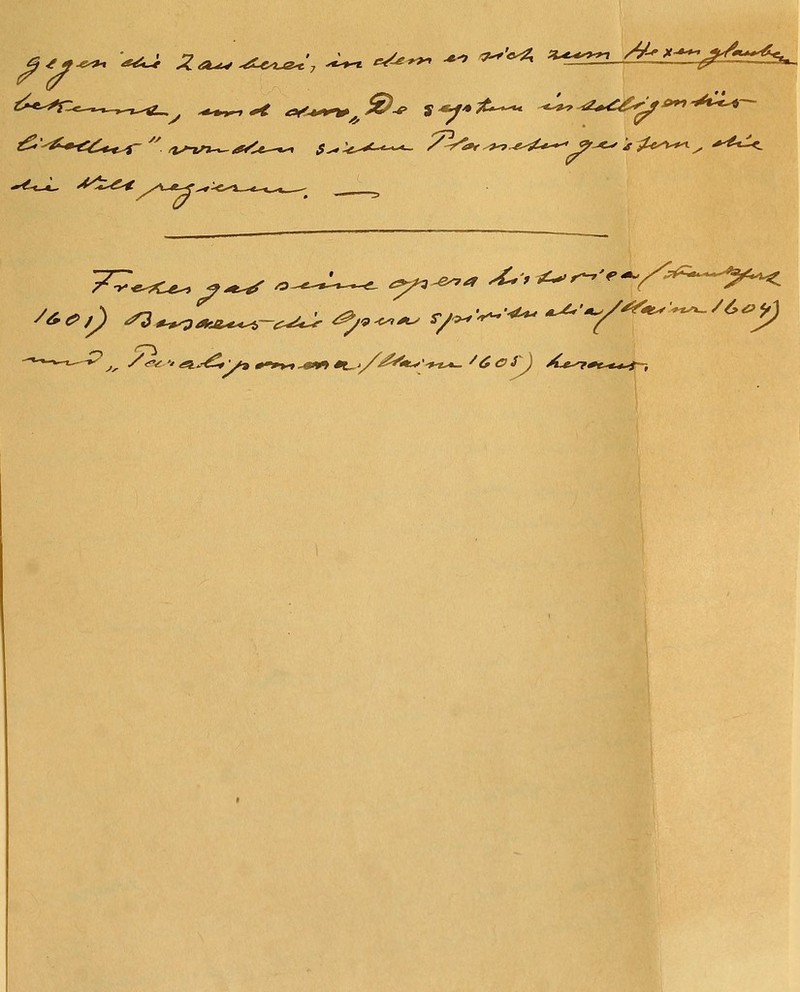 gegen die Zauberei, in dem er sich zum Hexenglauben
bekennt, und dem „De septem intelligentiis
libellus" von den sieben Planetengeistern, die
die Welt regieren. —
Freher gab seine opera historica (Frankfurt
1601) Busaeus die Opera spiritualia (Mainz 1604)
und „Paralipomena" (Mainz 1605) heraus.